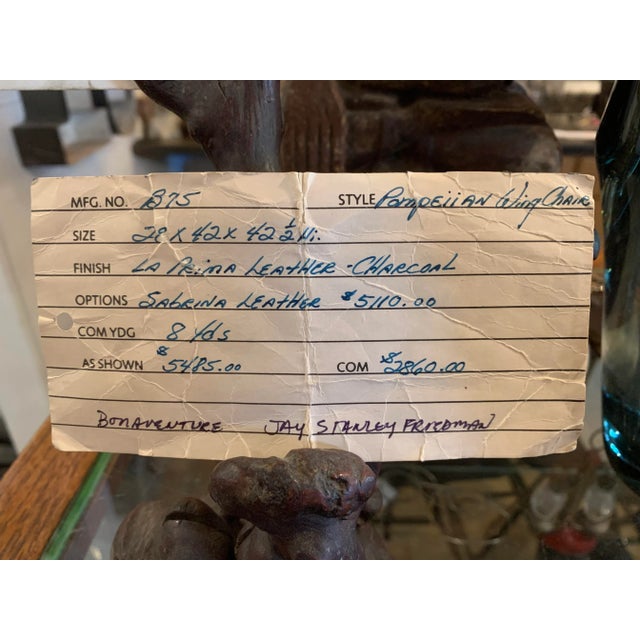 MFG. NO. B75 STYLE Pompeiian Wing Chair
SIZE 28 x 42 x 42 ½ Hi.
FINISH La Prima Leather - Charcoal
OPTIONS Sabrina Leather $5110.00
COM YDG 8 yds
AS SHOWN $5485.00 COM $2860.00
Bonaventure Jay Stanley Friedman